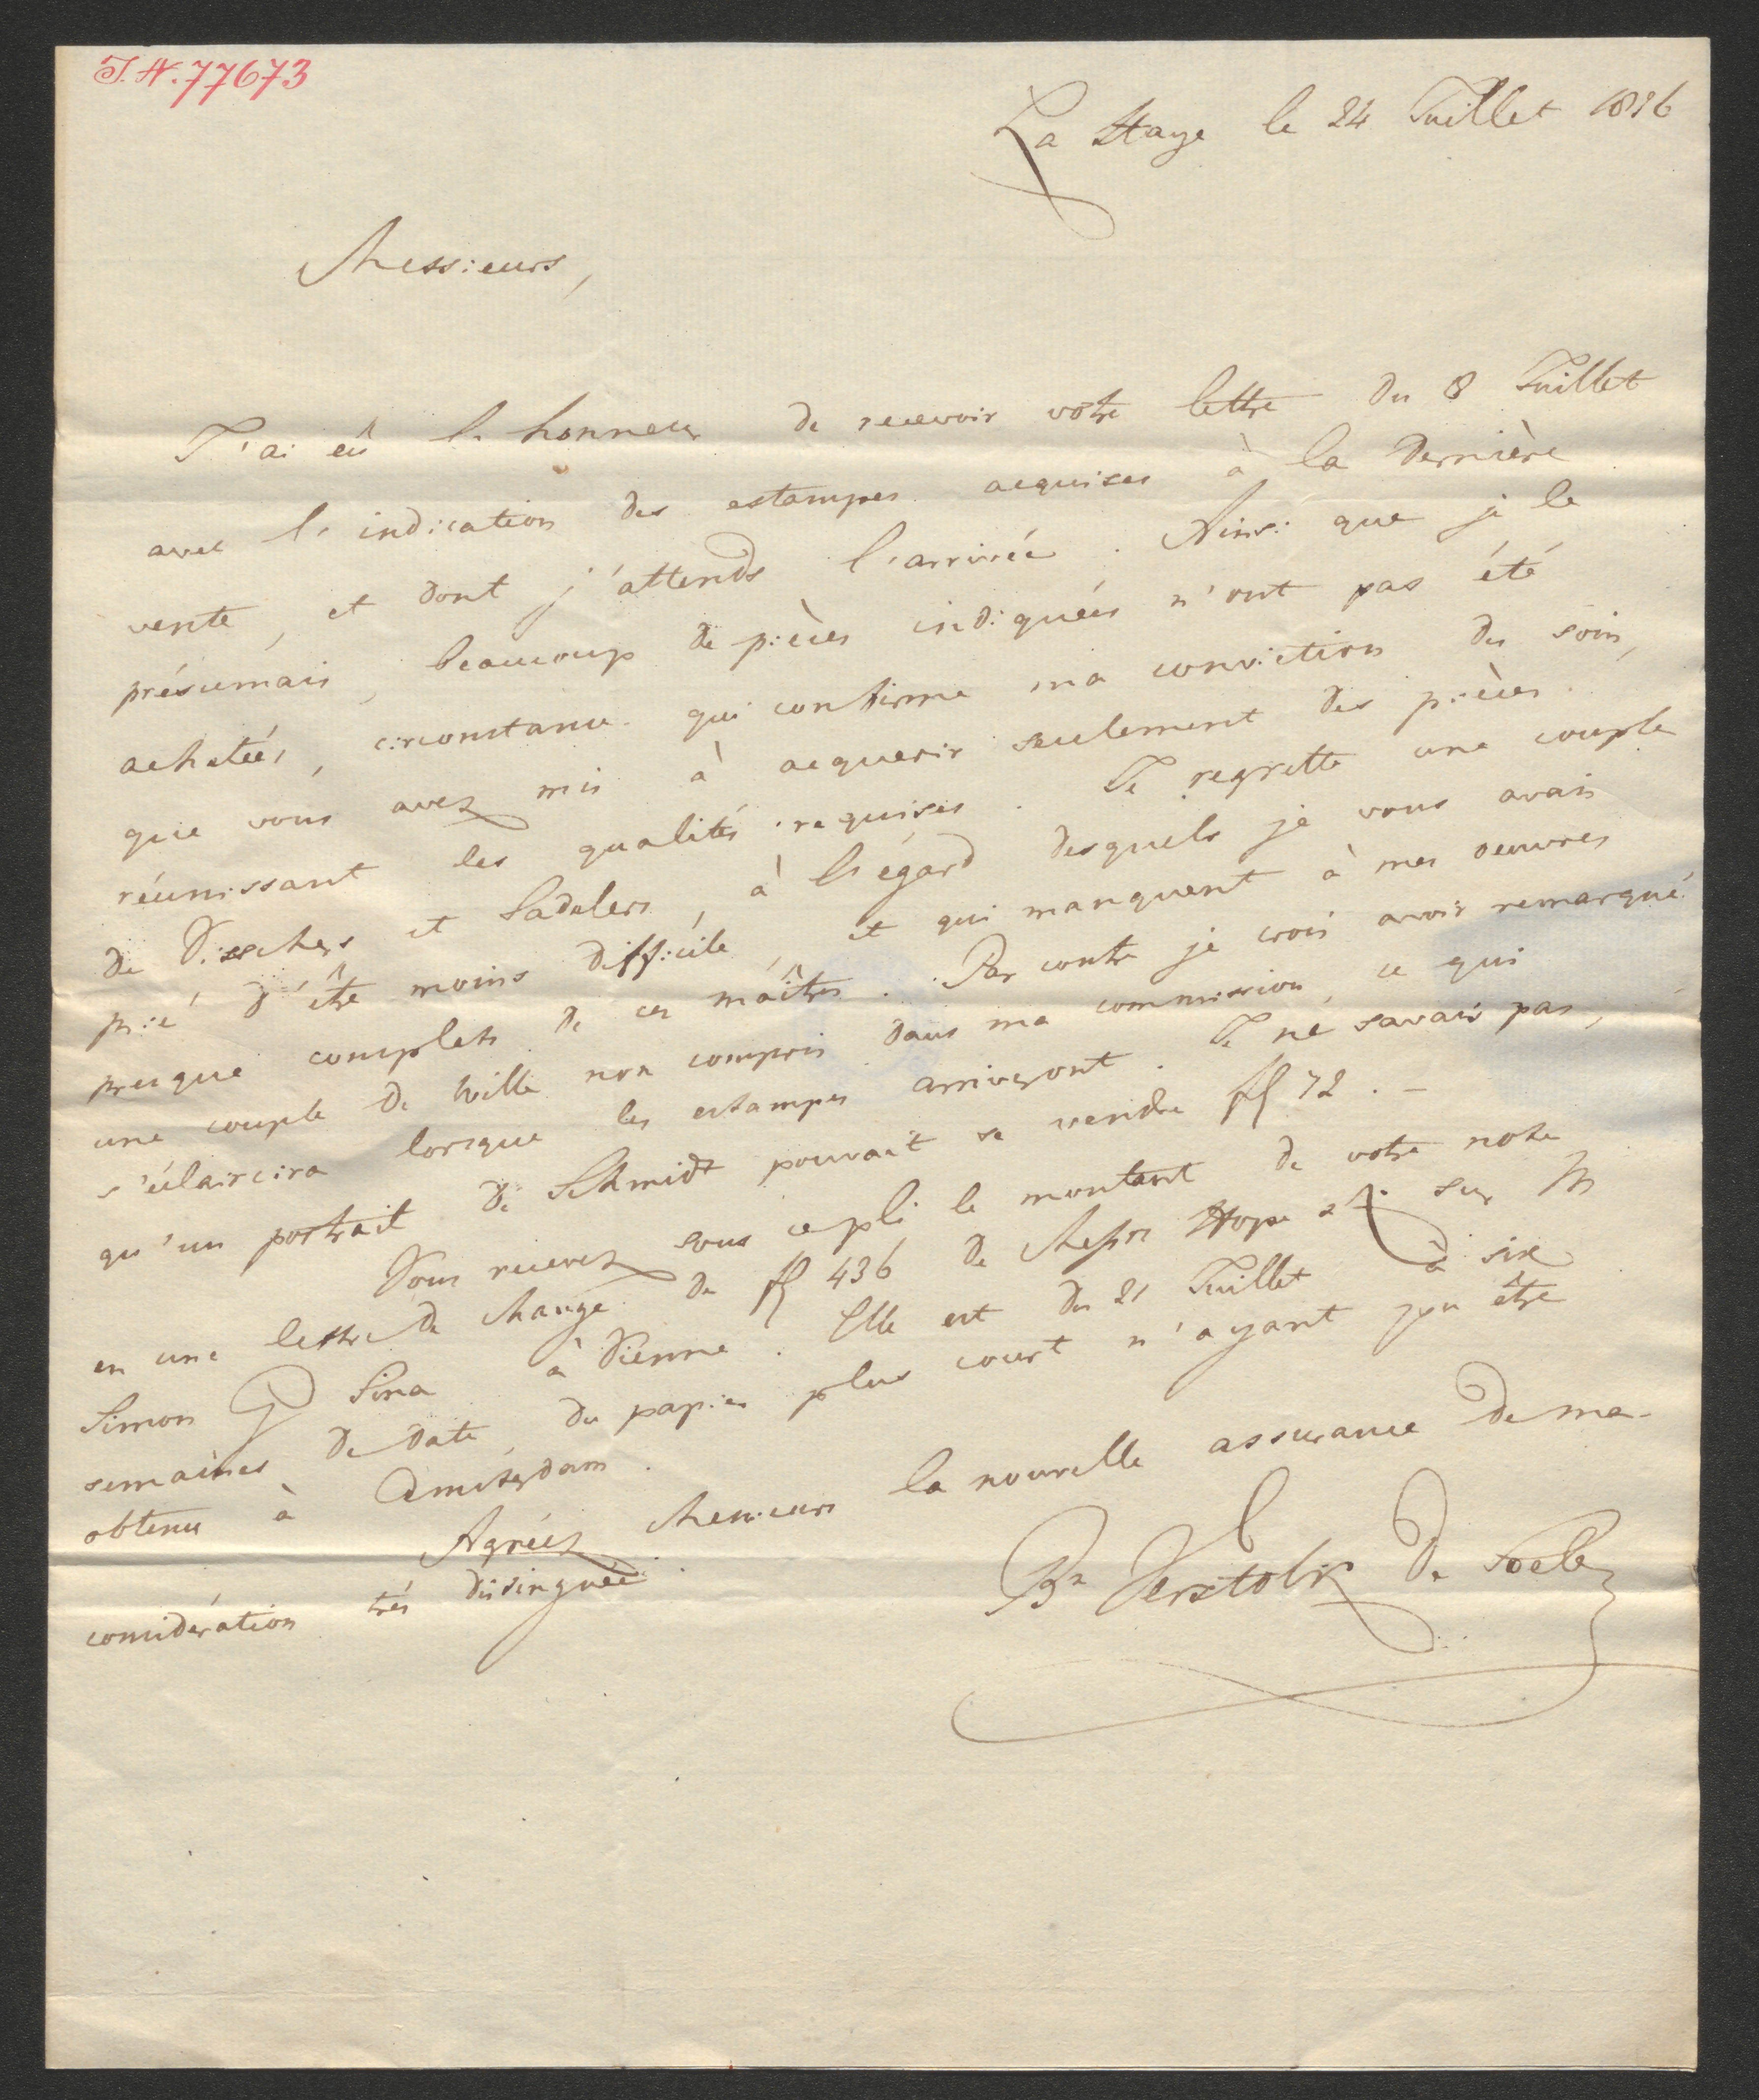 I. N. 77673
La Haye le 24 Juillet 1826
Messieurs,
J'ai eû l'honneur de recevoir votre lettre du 8 Juillet
avec l'indication des estampes acquises à la dernière
vente, et dont j'attends l'arrivée. Ainsi que je le
présumais, beaucoup de pièces indiquées n'ont pas été
achetées, circonstance qui confirme ma conviction du soin,
que vous avez mis à acquerir seulement des pièces
réunissant les qualités requises. Je regrette une couple
de Visschers et Sadelers, à l'égard desquels je vous avais
prié d'être moins difficile, et qui manquent à mes oeuvres
presque complets de ces maîtres. Par contre je crois avoir remarqué
une couple de Wille non compris dans ma commission, ce qui
s'éclaircira lorsque les estampes arriveront. Je ne savais pas,
qu'un portrait de Schmidt pouvait se vendre ff 72.-
Vous recevez sous ce pli le montant de votre note
en une lettre de change de ff 436 de Messrs Hope & Co. sur M
Simon G Sina à Vienne. Elle est du 21 Juillet à six
semaines de date, du papier plus court n'ayant pu être
obtenu à Amsterdam.
Agréez Messieurs la nouvelle assurance de ma
considération très distinguée.
Bn Verstolk de Soelen